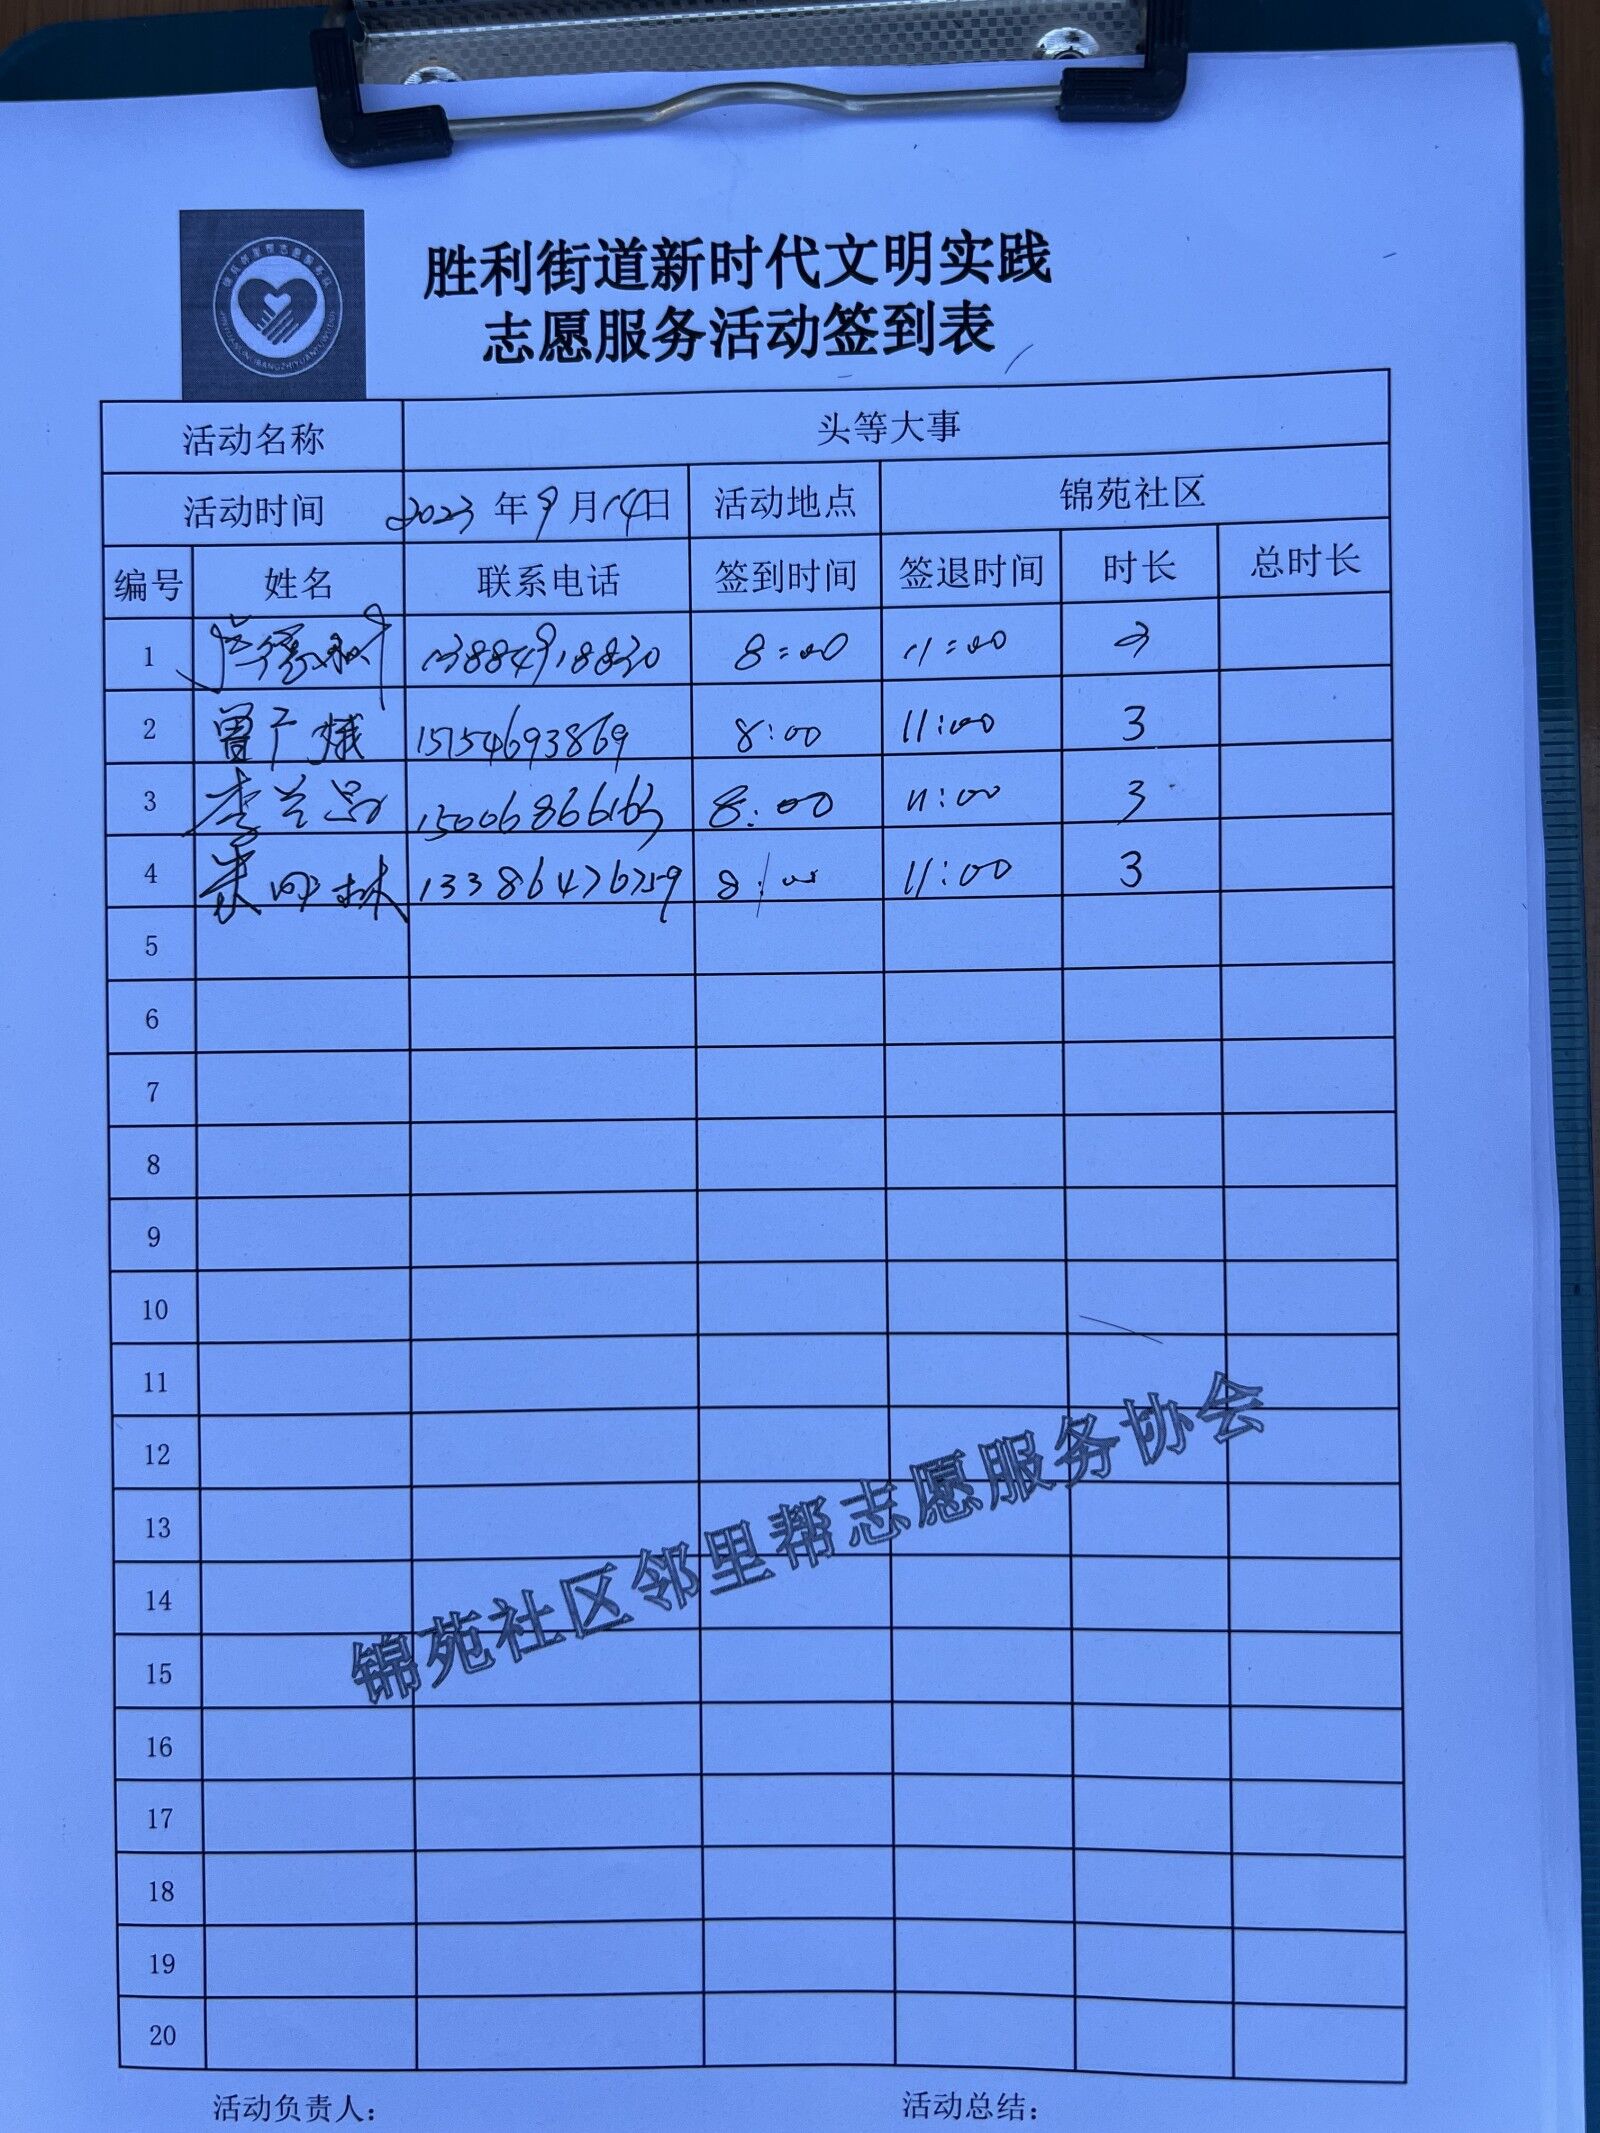 胜利街道新时代文明实践
志愿服务活动签到表
活动名称 头等大事
活动时间 2023年9月14日 活动地点 锦苑社区
编号 姓名 联系电话 签到时间 签退时间 时长 总时长
1 13884918830 8:00 11:00 3
2 曾广娥 15154693869 8:00 11:00 3
3 李兰 15006866163 8:00 11:00 3
4 林 13386476759 8:00 11:00 3
5
6
7
8
9
10
11
12
13
14
15
16
17
18
19
20
锦苑社区邻里帮志愿服务协会
活动负责人: 活动总结: